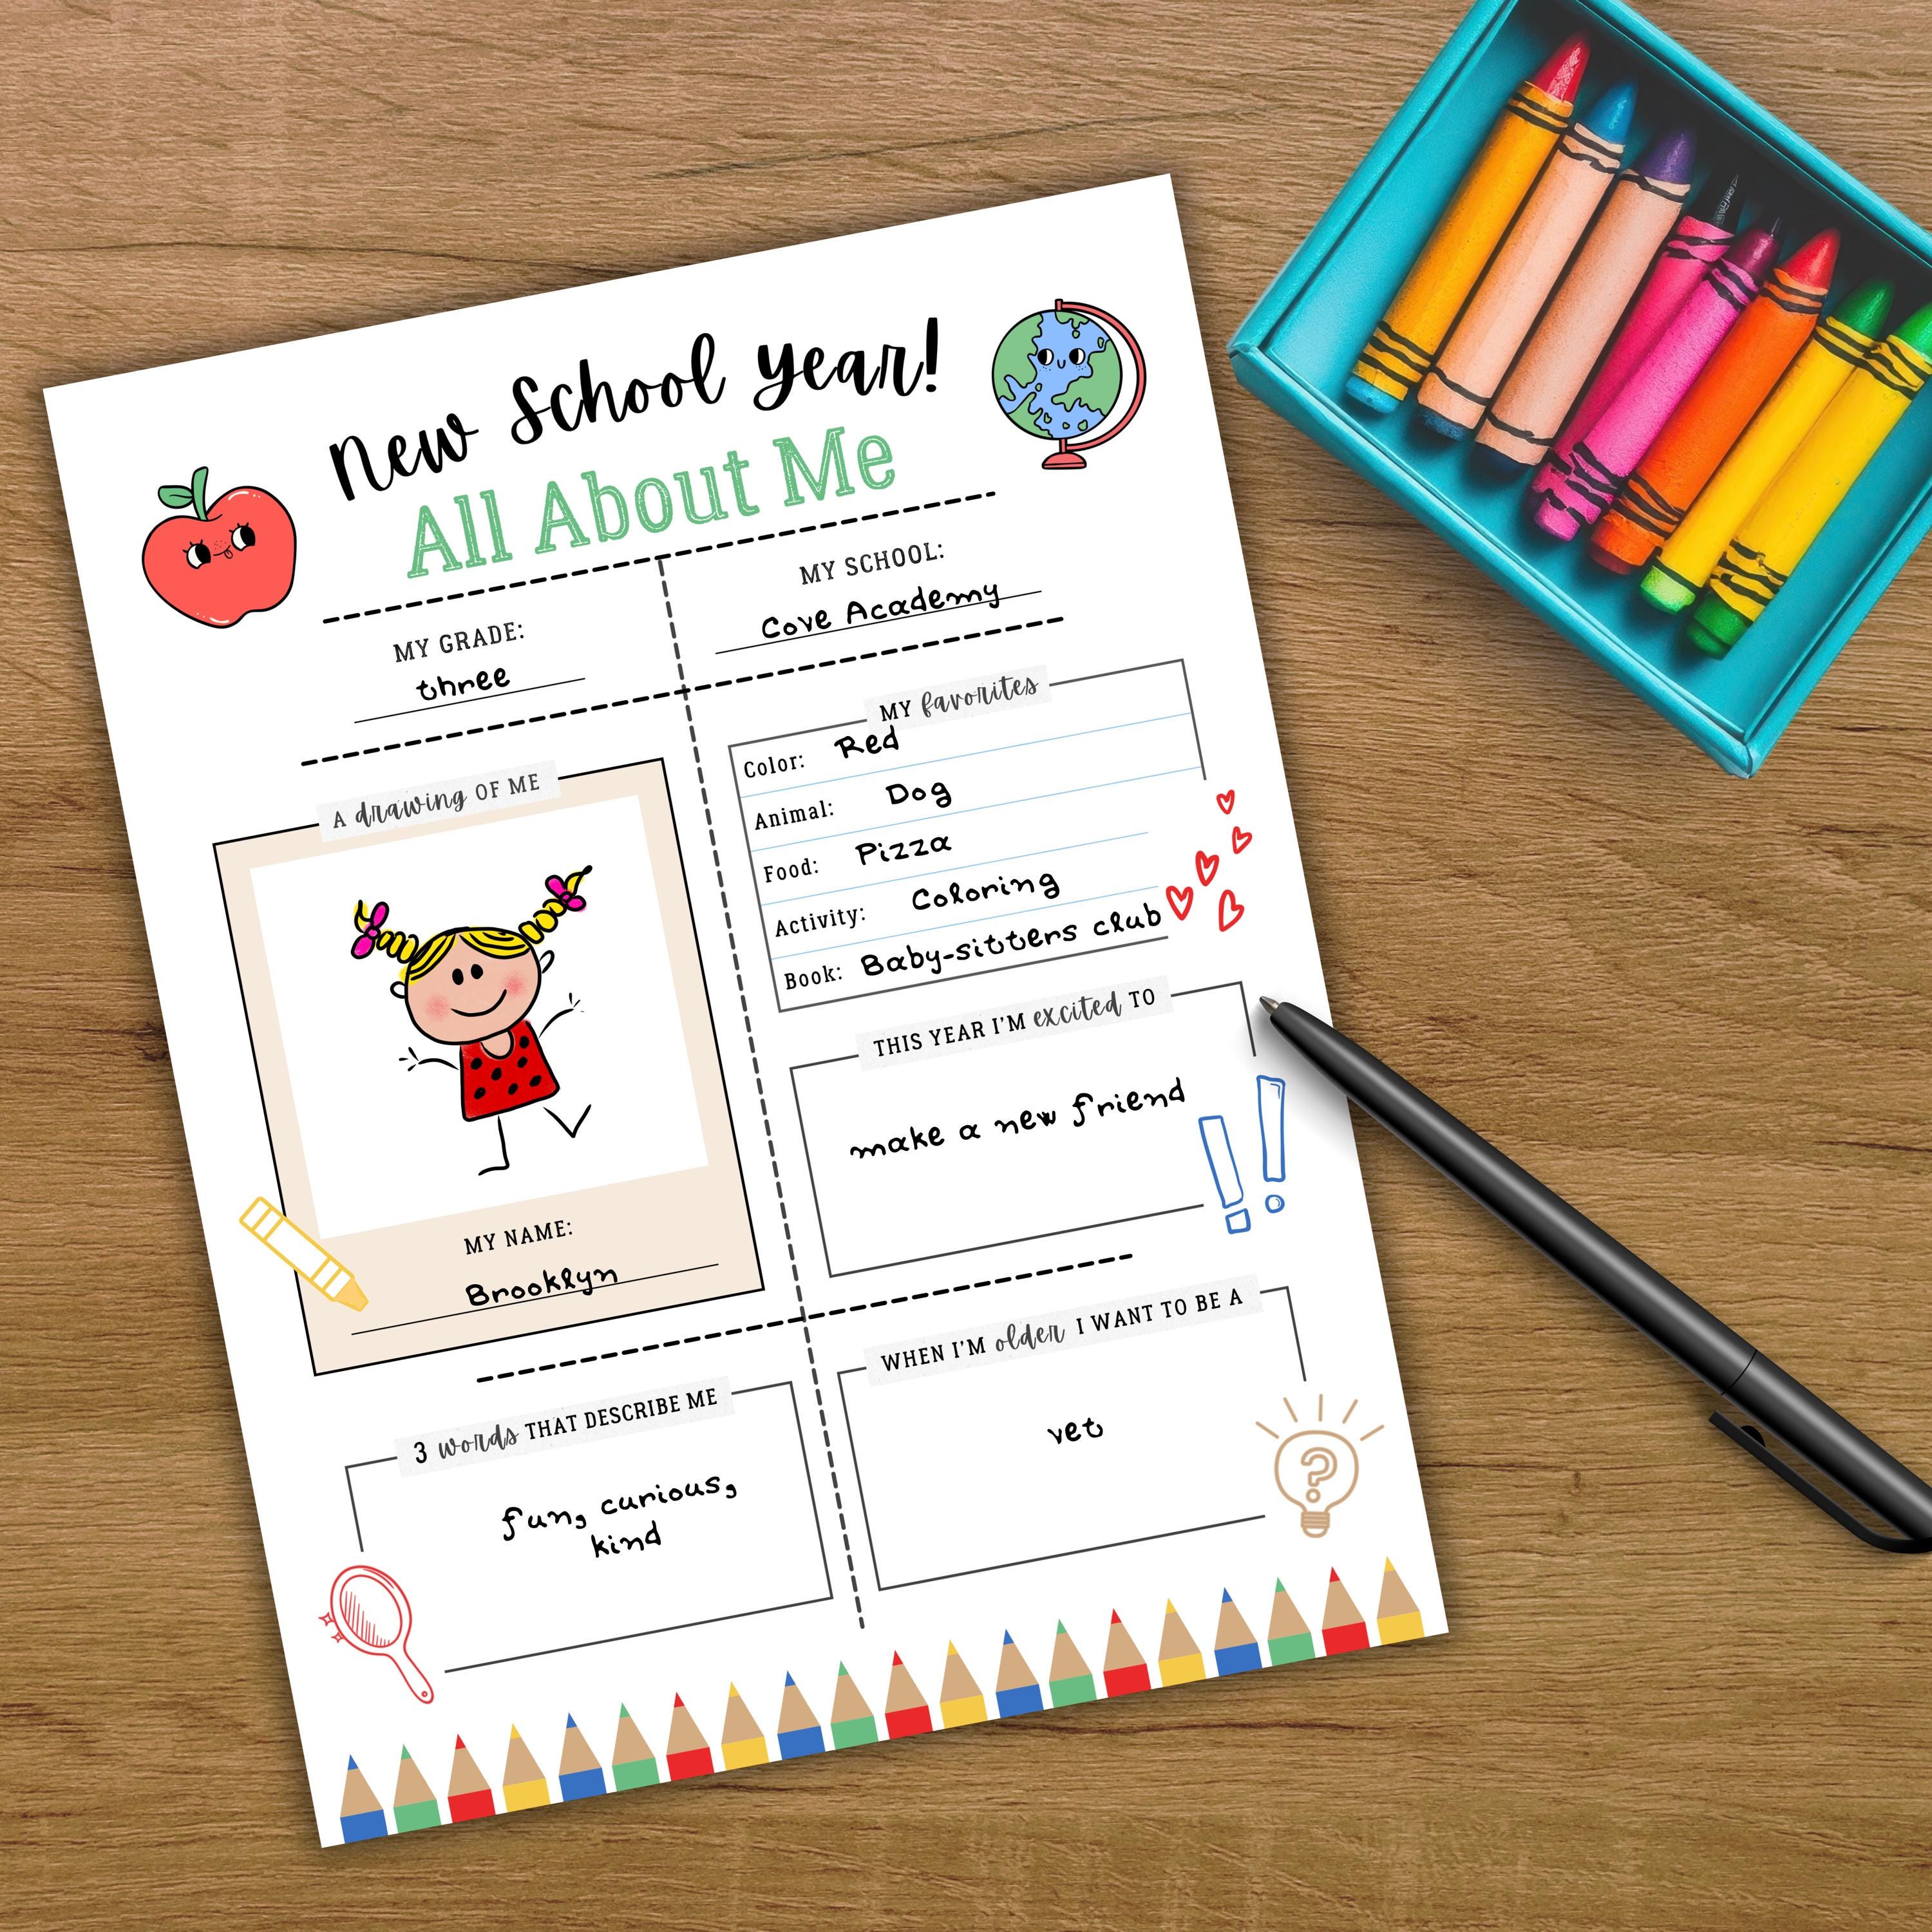 New School Year!
All About Me
MY GRADE:
three
MY SCHOOL:
Cove Academy
A drawing OF ME
MY NAME:
Brooklyn
MY favorites
Color: Red
Animal: Dog
Food: Pizza
Activity: Coloring
Book: Baby-sitters club
THIS YEAR I'M excited TO
make a new friend
3 words THAT DESCRIBE ME
fun, curious,
kind
WHEN I'M older I WANT TO BE A
vet
?